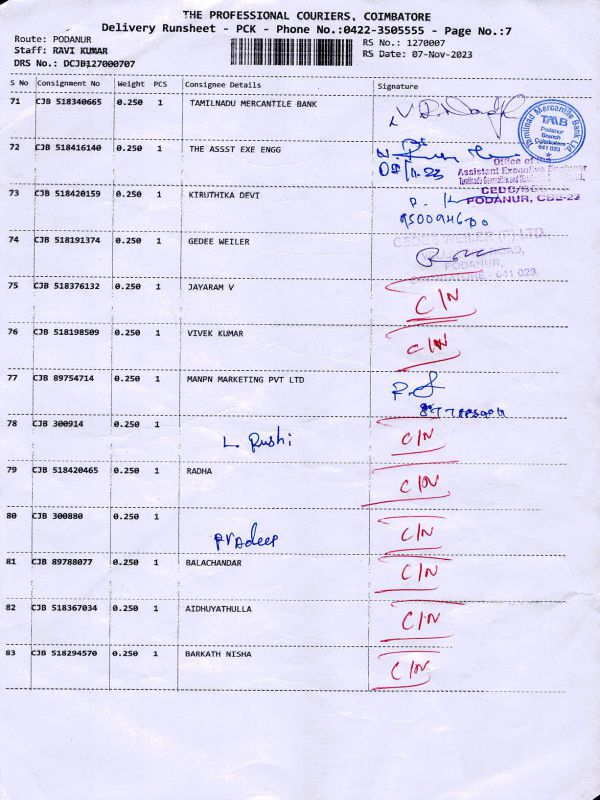 THE PROFESSIONAL COURIERS, COIMBATORE
Delivery Runsheet - PCK - Phone No.:0422-3505555 - Page No.:7
Route: PODANUR
Staff: RAVI KUMAR
DRS No.: DCJB127000707
RS No.: 1270007
RS Date: 07-Nov-2023
S No Consignment No Weight PCS Consignee Details Signature
71 CJB 518340665 0.250 1 TAMILNADU MERCANTILE BANK
Tamilnad Mercantile Bank Ltd.
TMB
Podanur
Branch
Coimbatore
641 023
72 CJB 518416140 0.250 1 THE ASSST EXE ENGG
Office of
Assistant Executive Engineer
PODANUR, CBE-23
73 CJB 518420159 0.250 1 KIRUTHIKA DEVI
74 CJB 518191374 0.250 1 GEDEE WEILER
GEDEE WEILER (P) LTD.
ROAD,
PODANUR,
COIMBATORE - 641 023.
75 CJB 518376132 0.250 1 JAYARAM V C/N
76 CJB 518198509 0.250 1 VIVEK KUMAR C/N
77 CJB 89754714 0.250 1 MANPN MARKETING PVT LTD
78 CJB 300914 0.250 1 L. Rushi C/N
79 CJB 518420465 0.250 1 RADHA C/N
80 CJB 300880 0.250 1 Pradeep C/N
81 CJB 89788077 0.250 1 BALACHANDAR C/N
82 CJB 518367034 0.250 1 AIDHUYATHULLA C/N
83 CJB 518294570 0.250 1 BARKATH NISHA C/N